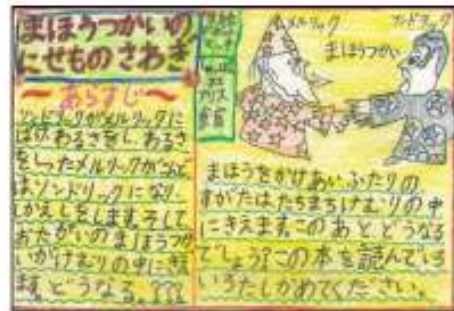 まほうつかいの
にせものさわぎ
～あらすじ～
ゾンドリックがメルリックに
ばけわるさをし、あるさ
をしったメルリックがこんど
はゾンドリックになり、
しかえしをします。そして
おたがいのまほうつか
いがけむりの中にきえ
ます。どうなる。???
メルリック
ゾンドリック
まほうつかい
まほうをかけあい、ふたりの
すがたはたちまちけむりの中
にきえます。このあとどうなる
でしょう?この本を読んで
たしかめてください。